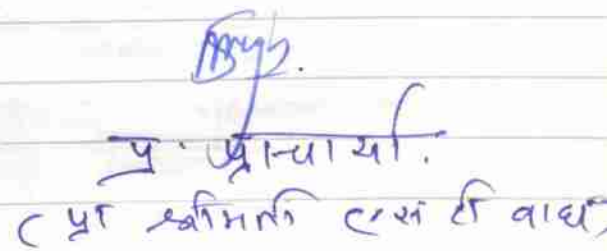 प्र. प्राचार्या.
(प्रा श्रीमती एस टी वाघ)